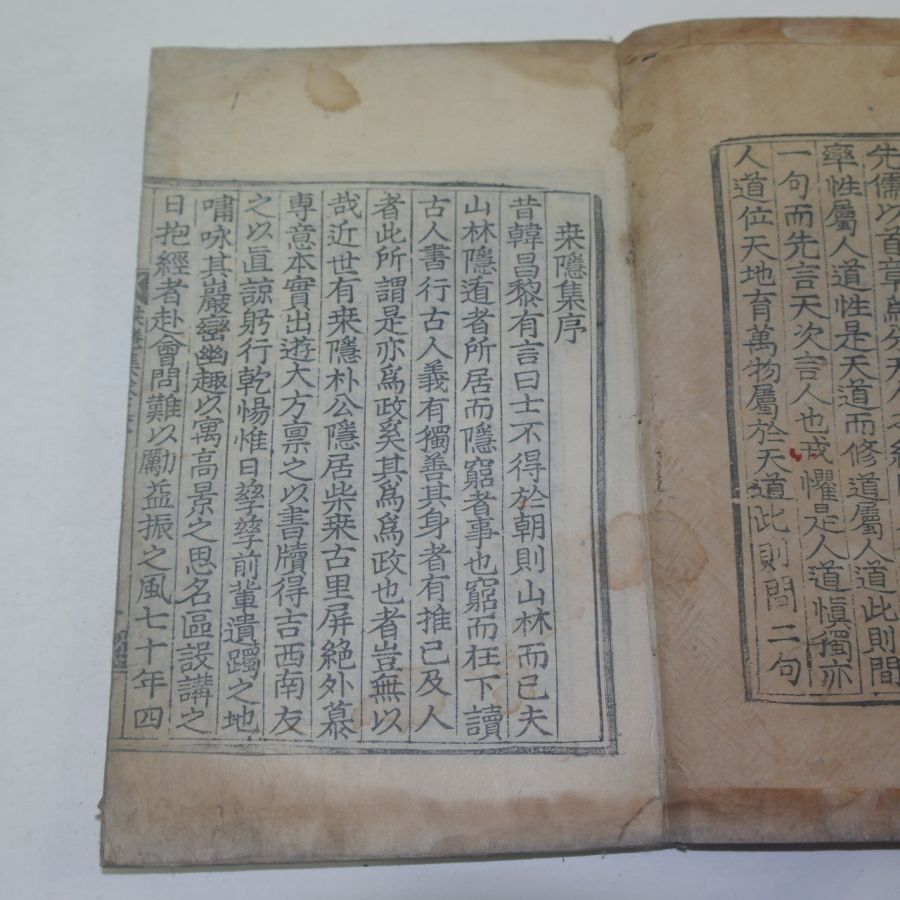 先儒以首章
率性屬人道性是天道而修道屬人道此則間
一句而先言天次言人也戒懼是人道愼獨亦
人道位天地育萬物屬於天道此則間二句
桒隱集序
昔韓昌黎有言曰士不得於朝則山林而已夫
山林隱遁者所居而隱窮者事也窮而在下讀
古人書行古人義有獨善其身者有推己及人
者此所謂是亦爲政奚其爲爲政也者豈無以
哉近世有桒隱朴公隱居柴桒古里屏絶外慕
専意本實出遊大方禀之以書牘得吉西南友
之以直諒躬行乾惕惟日孶孶前輩遺躅之地
嘯咏其巖巒幽趣以寓高景之思名區設講之
日抱經者赴會問難以勵益振之風七十年四